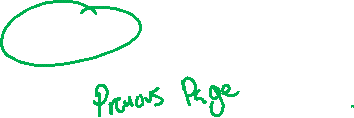 Previous Page